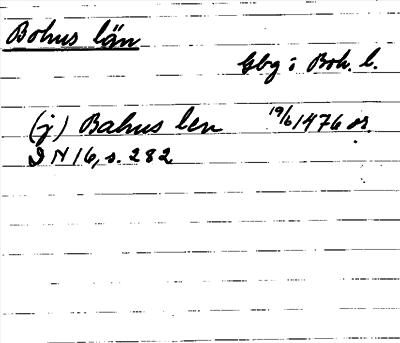 Bohus län
Gbg o Boh. l.
(j) Bahus len 19/6 1476 or.
DN 16, s. 282